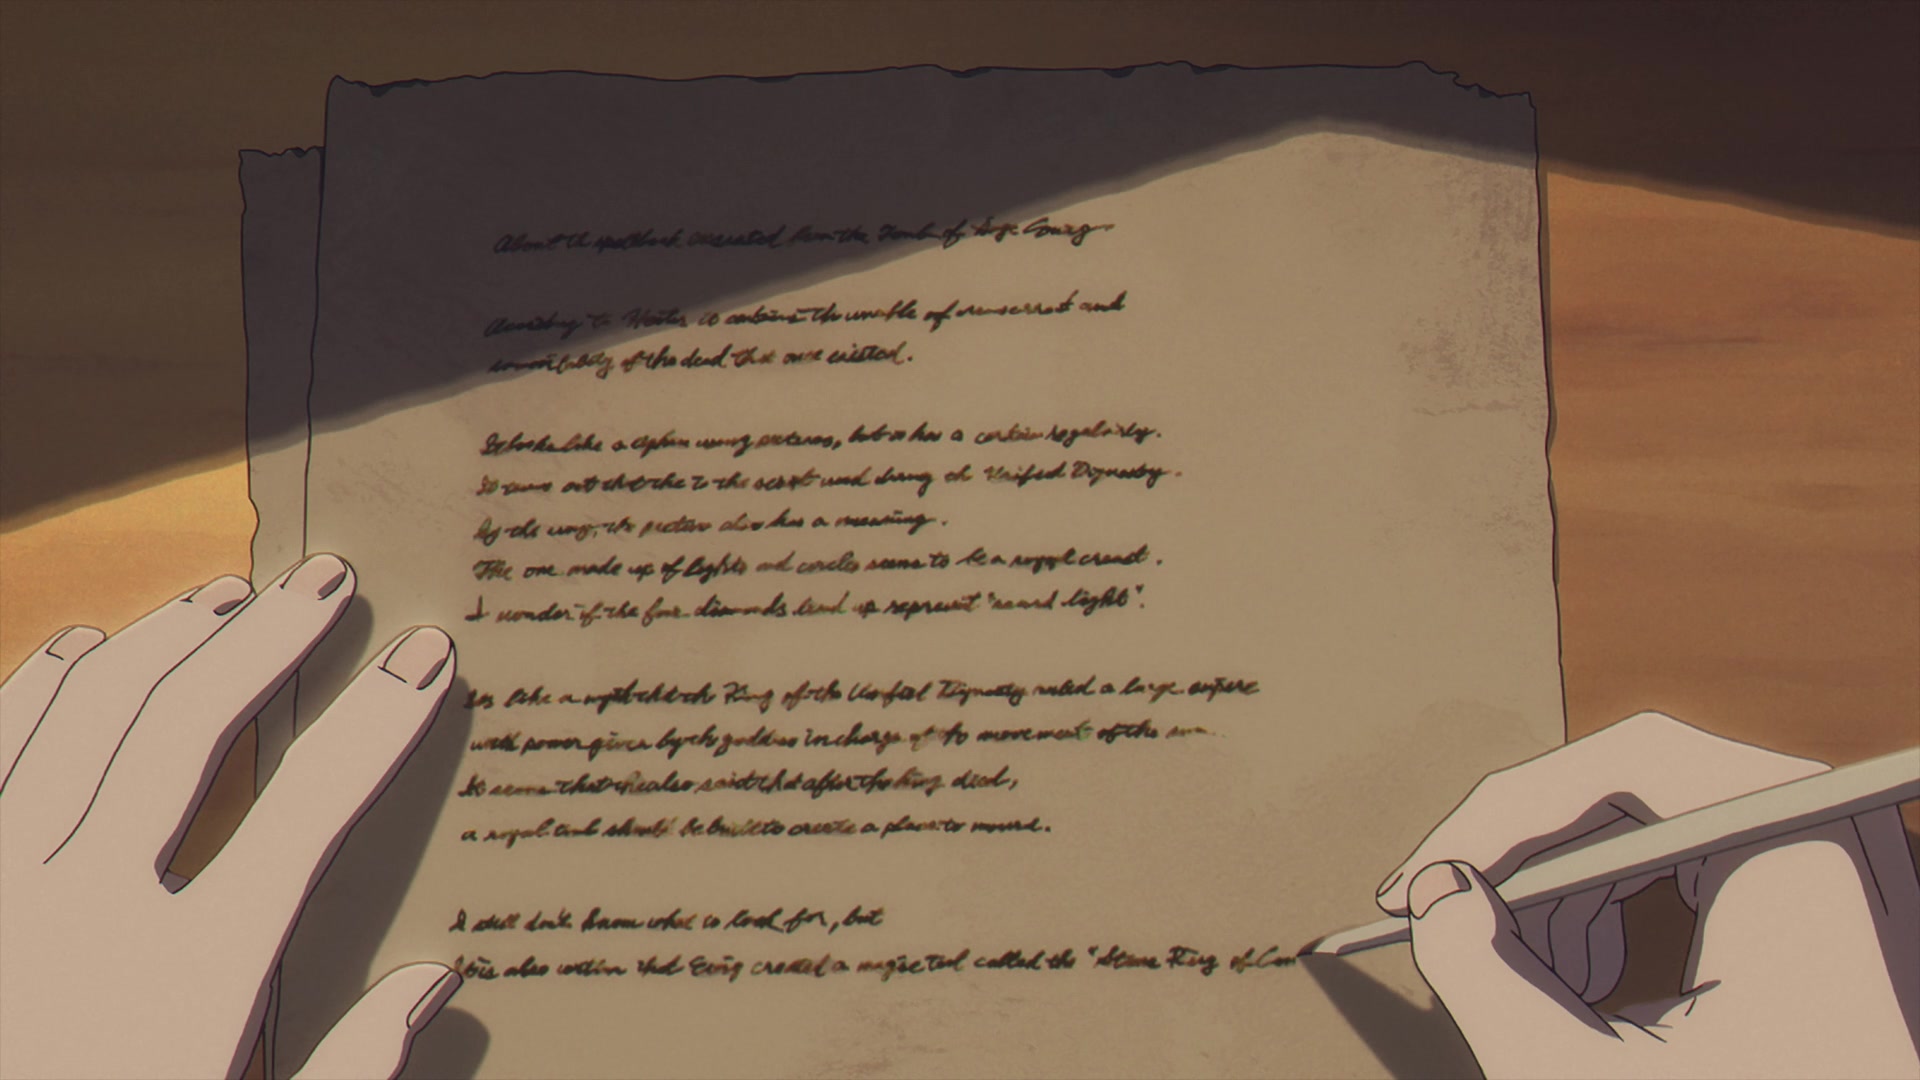 About the spellbook excavated from the Tomb of
According to it contains the of and
of the dead that once existed.
It looks like a cipher using pictures, but it has a certain regularity.
It turns out that the is the script used during the Unified Dynasty.
By the way, the picture also has a meaning.
The one made up of lights and circles seems to be a royal crest.
I wonder if the four diamonds lined up represent "sacred light".
It's like a myth that the King of the Unified Dynasty ruled a large empire
with power given by the goddess in charge of the movement of the sun.
It seems that he also said that after the king died,
a royal tomb should be built to create a place to mourn.
I still don't know what to look for, but
It is also written that Ewig created a magic tool called the "Stone Ring of